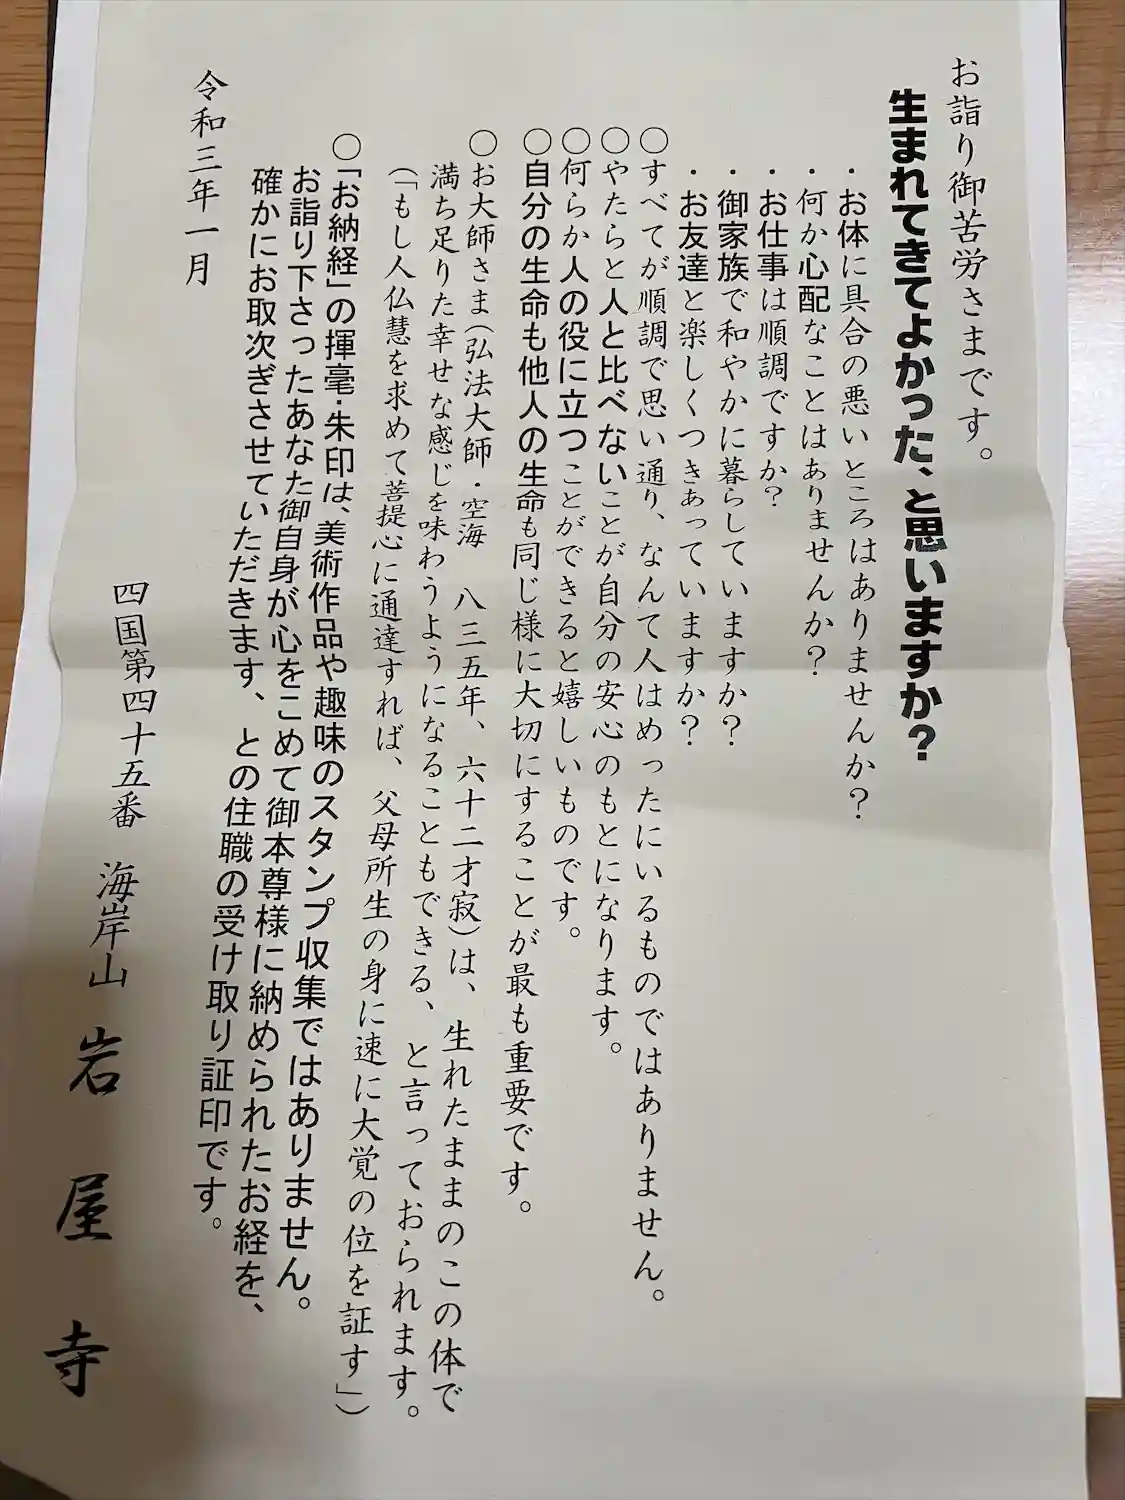 お詣り御苦労さまです。
生まれてきてよかった、と思いますか？
・お体に具合の悪いところはありませんか？
・何か心配なことはありませんか？
・お仕事は順調ですか？
・御家族で和やかに暮らしていますか？
・お友達と楽しくつきあっていますか？
○すべてが順調で思い通り、なんて人はめったにいるものではありません。
○やたらと人と比べないことが自分の安心のもとになります。
○何らか人の役に立つことができると嬉しいものです。
○自分の生命も他人の生命も同じ様に大切にすることが最も重要です。
○お大師さま（弘法大師・空海　八三五年、六十二才寂）は、生れたままのこの体で
満ち足りた幸せな感じを味わうようになることもできる、と言っておられます。
（「もし人仏慧を求めて菩提心に通達すれば、父母所生の身に速に大覚の位を証す」）
○「お納経」の揮毫・朱印は、美術作品や趣味のスタンプ収集ではありません。
お詣り下さったあなた御自身が心をこめて御本尊様に納められたお経を、
確かにお取次ぎさせていただきます、との住職の受け取り証印です。
令和三年一月
四国第四十五番　海岸山　岩屋寺